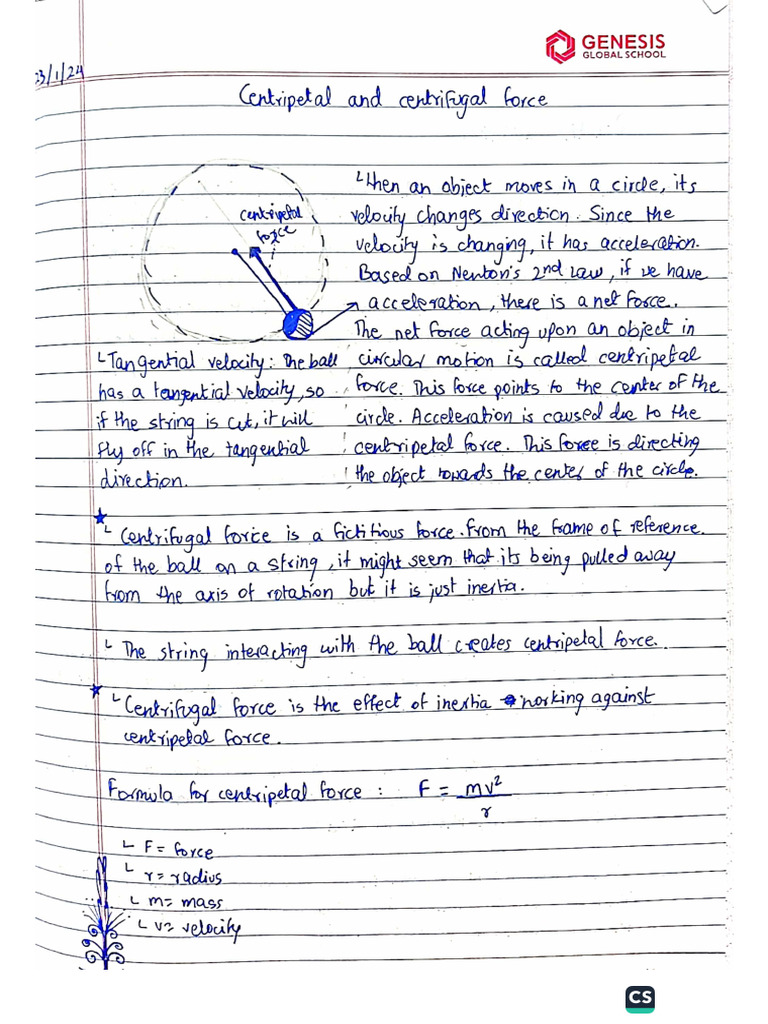 GENESIS
GLOBAL SCHOOL
23/1/24
Centripetal and centrifugal force
centripetal
force
When an object moves in a circle, its
velocity changes direction. Since the
velocity is changing, it has acceleration.
Based on Newton's 2nd Law, if we have
acceleration, there is a net force.
The net force acting upon an object in
circular motion is called centripetal
force. This force points to the center of the
circle. Acceleration is caused due to the
centripetal force. This force is directing
the object towards the center of the circle.
Tangential velocity: The ball
has a tangential velocity, so
if the string is cut, it will
fly off in the tangential
direction.
Centrifugal force is a fictitious force. From the frame of reference
of the ball on a string, it might seem that its being pulled away
from the axis of rotation but it is just inertia.
The string interacting with the ball creates centripetal force.
Centrifugal force is the effect of inertia working against
centripetal force.
Formula for centripetal force: F = mv²
r
F = force
r = radius
m = mass
v = velocity
CS